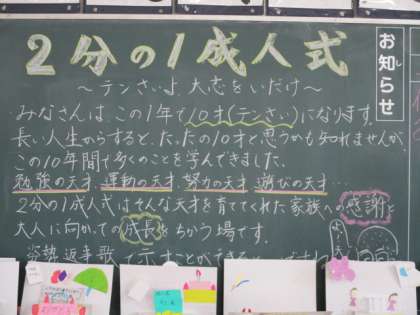 2分の1成人式
お知らせ
し
~テンさいよ大志をいだけ~
みなさんは、この1年で10才(テンさい)になります。
長い人生からすると、たったの10才と思うかも知れませんが、
この10年間で多くのことを学んできました。
勉強の天才、運動の天才、努力の天才、遊びの天才…
2分の1成人式はそんな天才を育ててくれた家族への感謝と
大人に向かっての成長をちかう場です。
姿勢 返事 歌で示すことができる